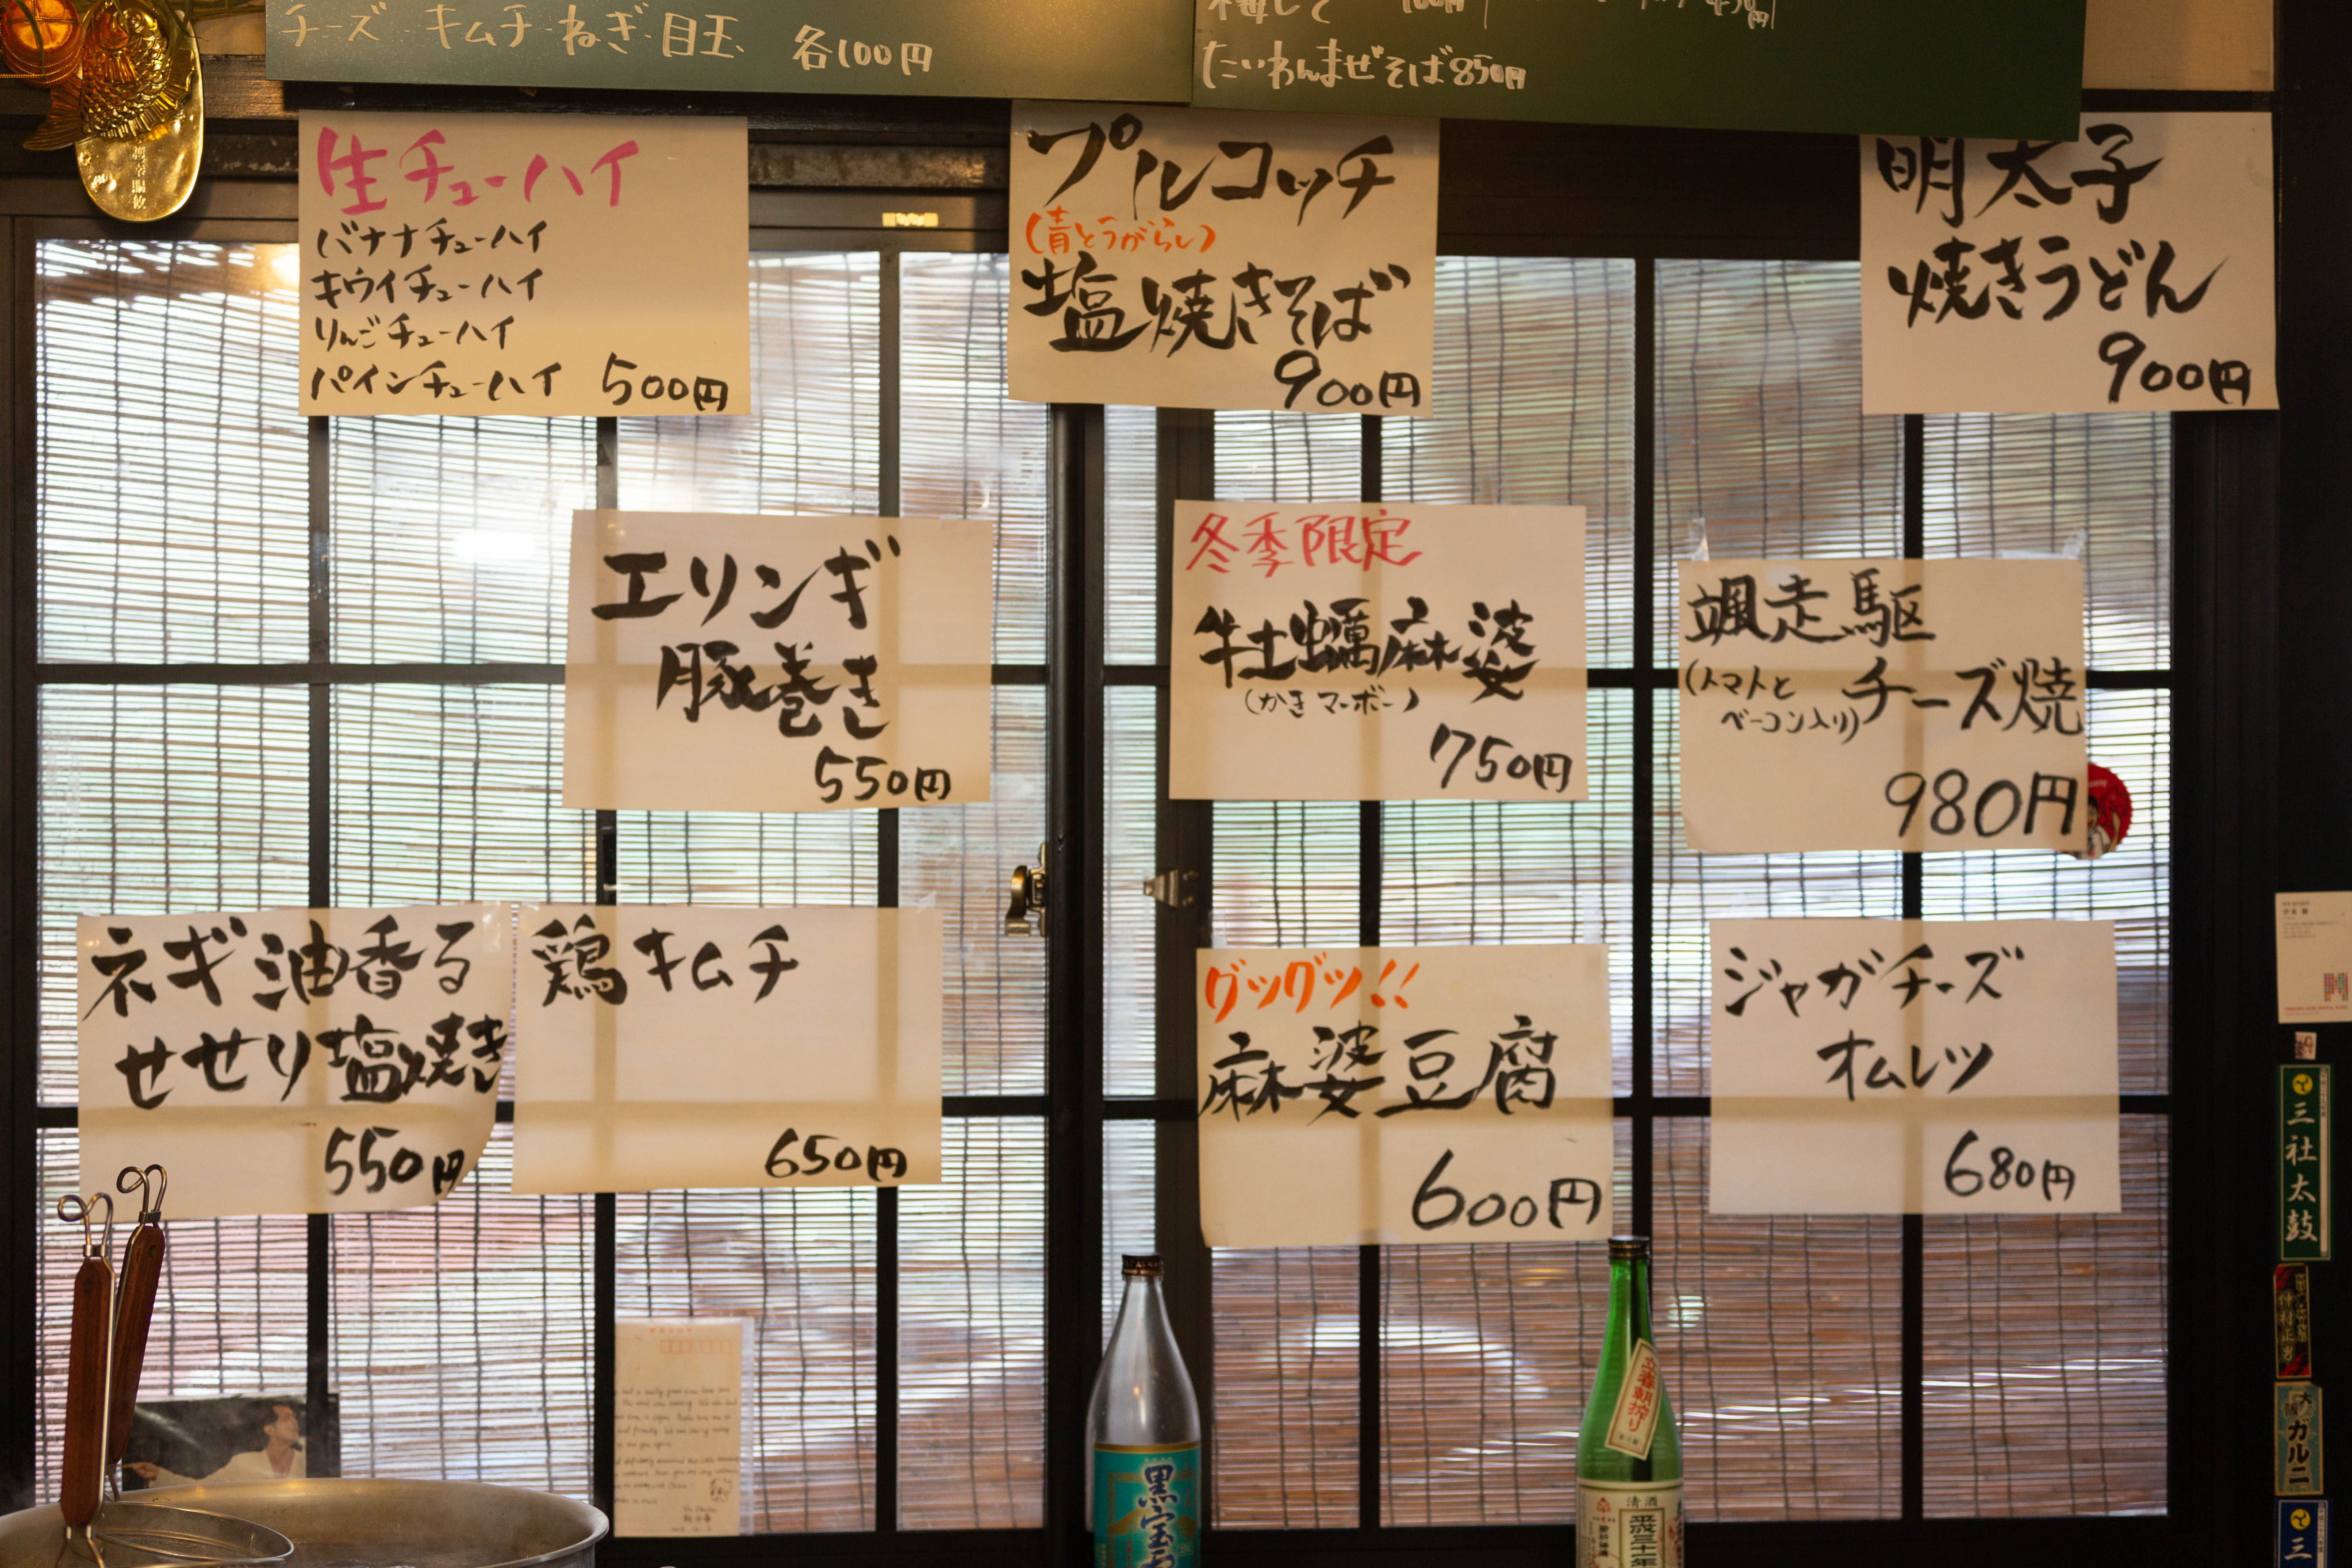 チーズ・キムチ・ねぎ・目玉 各100円
たいわんまぜそば850円
生チューハイ
バナナチューハイ
キウイチューハイ
りんごチューハイ
パインチューハイ 500円
プルコッチ
(青とうがらし)
塩焼きそば
900円
明太子
焼きうどん
900円
エリンギ
豚巻き
550円
冬季限定
牡蠣麻婆
(かきマーボー)
750円
颯走駆
(トマトと
ベーコン入り)チーズ焼
980円
ネギ油香る
せせり塩焼き
550円
鶏キムチ
650円
グツグツ!!
麻婆豆腐
600円
ジャガチーズ
オムレツ
680円
黒宝
立春朝搾り
清酒
平成三十一年
三社太鼓
仲村正男
大阪
ガルニ
三